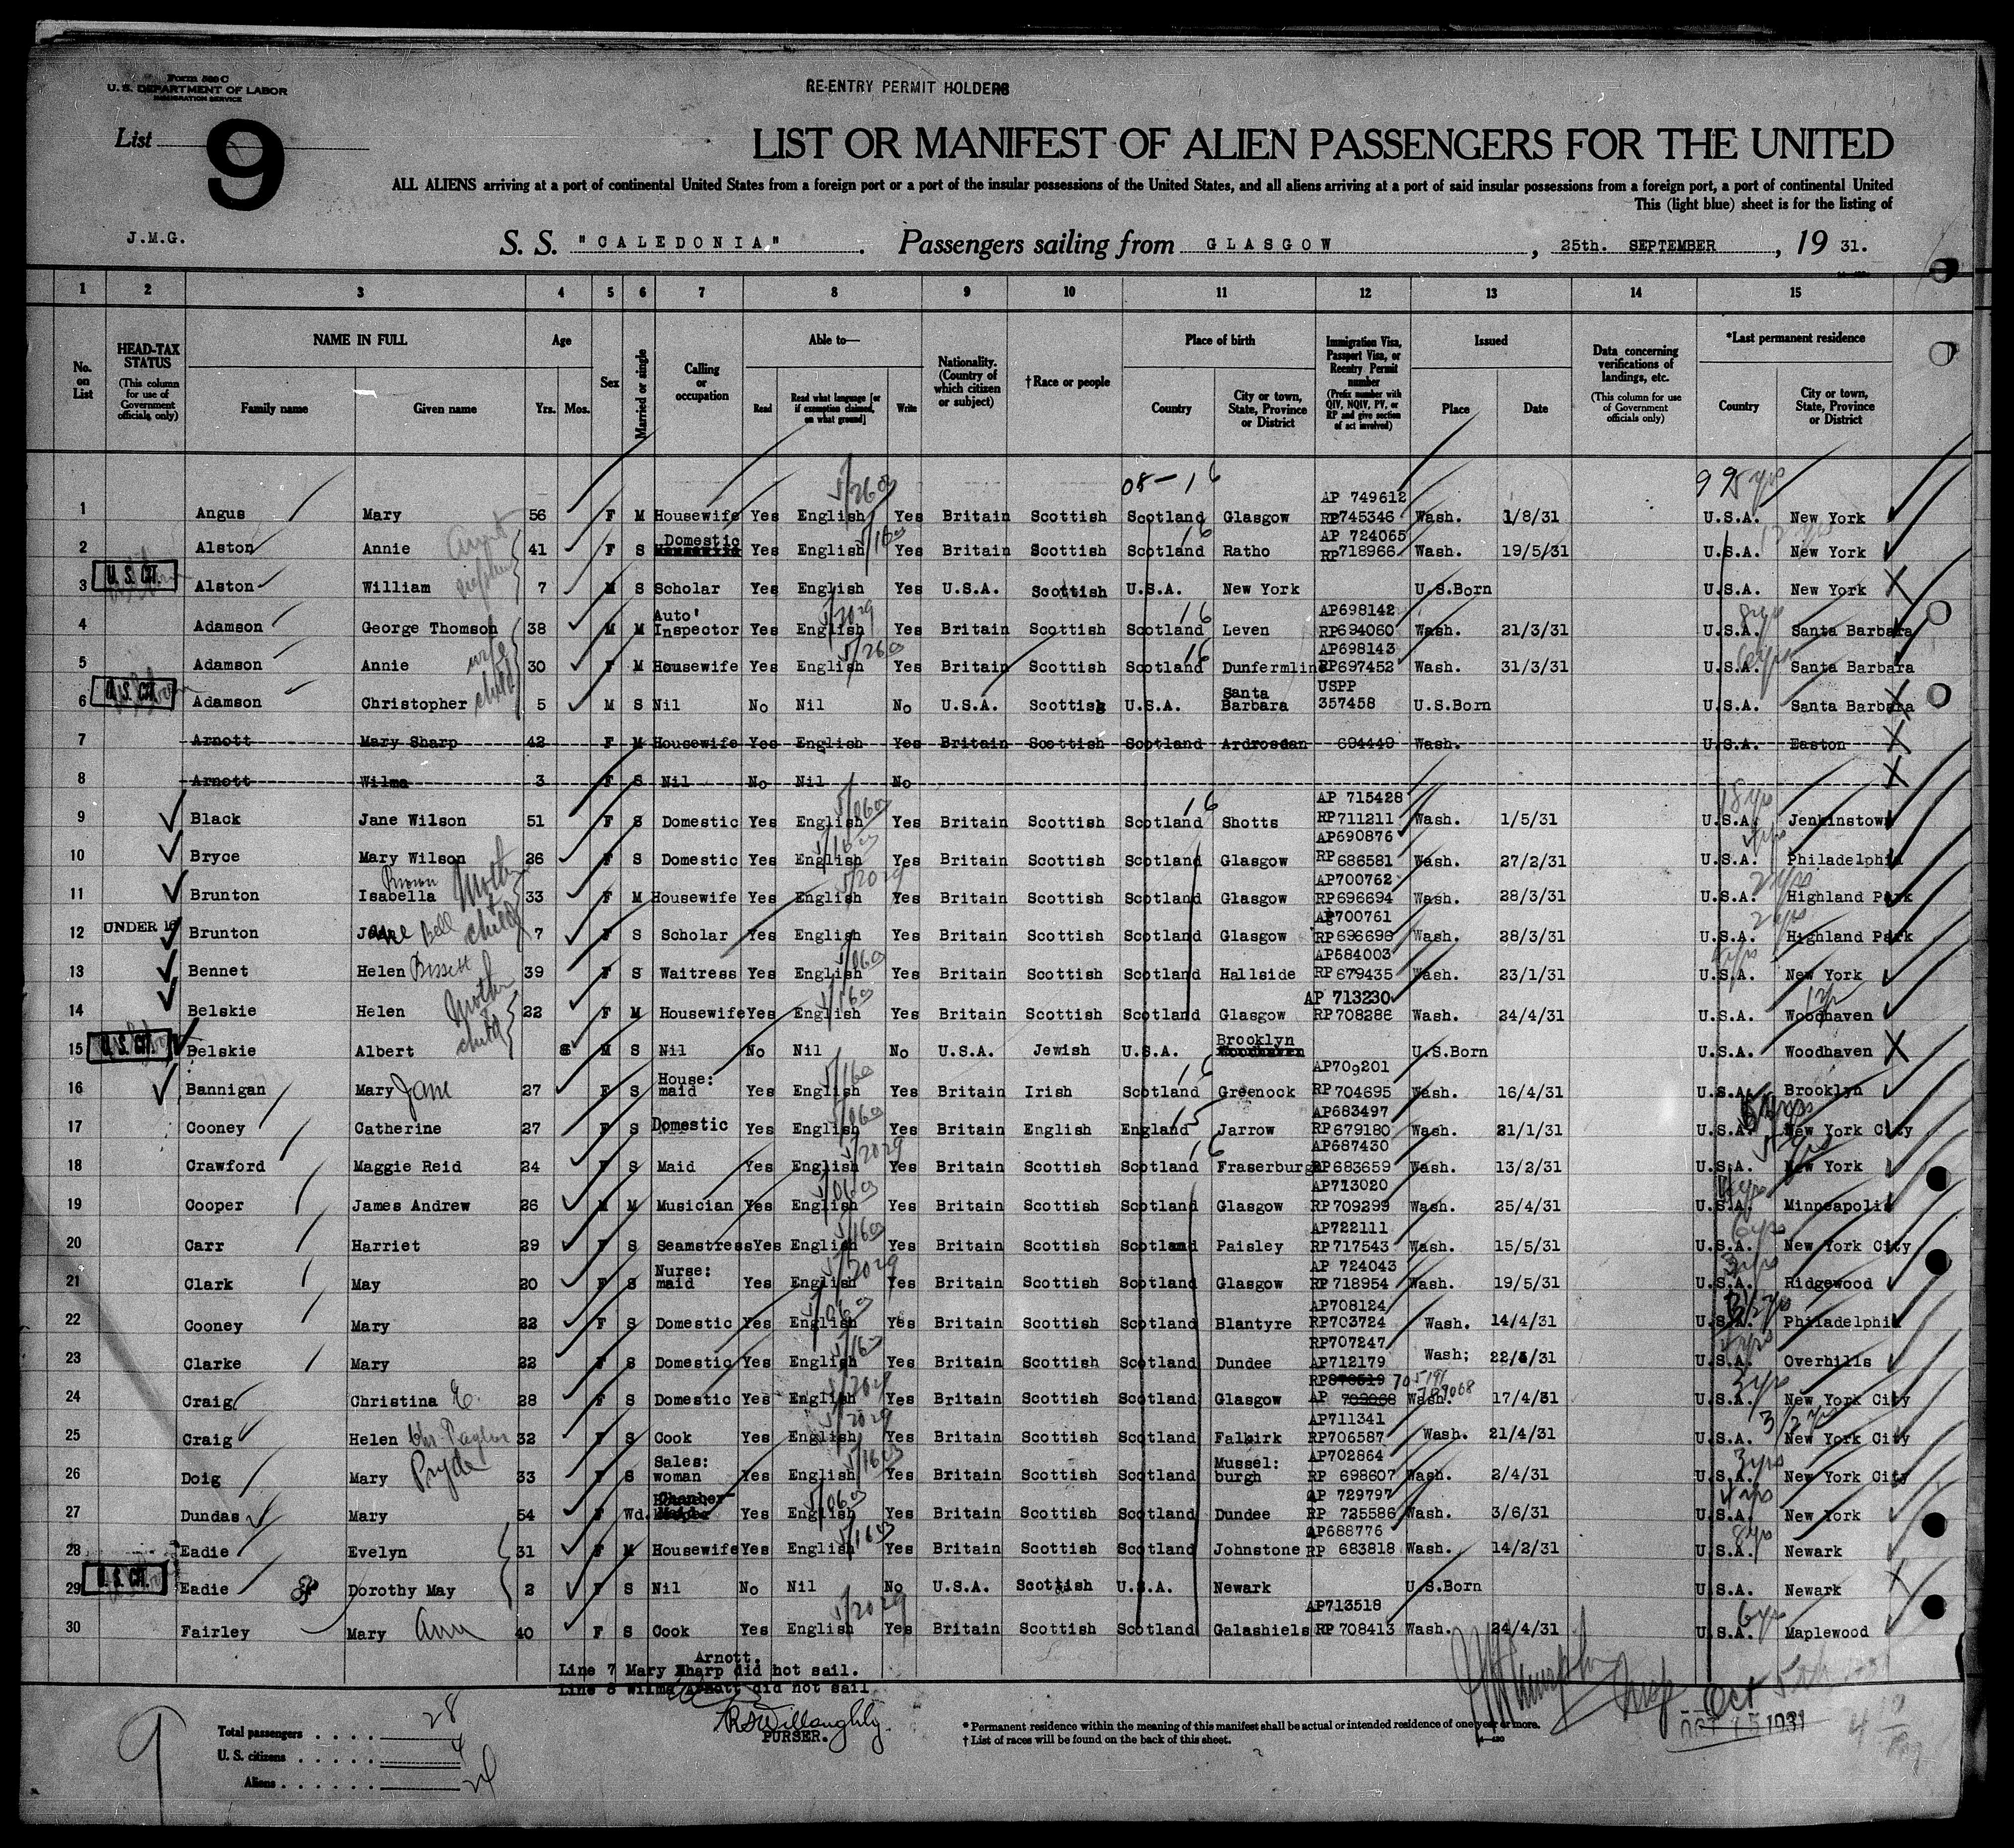 Form 500 C
U. S. DEPARTMENT OF LABOR
IMMIGRATION SERVICE
RE-ENTRY PERMIT HOLDERS
List 9
LIST OR MANIFEST OF ALIEN PASSENGERS FOR THE UNITED
ALL ALIENS arriving at a port of continental United States from a foreign port or a port of the insular possessions of the United States, and all aliens arriving at a port of said insular possessions from a foreign port, a port of continental United
This (light blue) sheet is for the listing of
J.M.G.
S. S. "CALEDONIA". Passengers sailing from GLASGOW, 25th. SEPTEMBER, 19 31.
1 2 3 4 5 6 7 8 9 10 11 12 13 14 15
No. on List
HEAD-TAX STATUS (This column for use of Government officials only)
NAME IN FULL Family name Given name
Age Yrs. Mos.
Sex
Married or single
Calling or occupation
Able to— Read Read what language [or if exemption claimed, on what ground] Write
Nationality. (Country of which citizen or subject)
†Race or people
Place of birth Country City or town, State, Province or District
Immigration Visa, Passport Visa, or Reentry Permit number (Prefix number with QIV, NQIV, PV, or RP and give section of act involved)
Issued Place Date
Data concerning verifications of landings, etc. (This column for use of Government officials only)
*Last permanent residence Country City or town, State, Province or District
05-16 99 5yrs
1 Angus Mary 56 F M Housewife Yes English Yes Britain Scottish Scotland Glasgow AP 749612 RP745346 Wash. 1/8/31 U.S.A. New York
2 Alston Annie Aunt 41 F S Domestic Yes English Yes Britain Scottish Scotland 16 Ratho AP 724065 RP718966 Wash. 19/5/31 U.S.A. New York
3 U.S. CIT. Alston William nephew 7 M S Scholar Yes English Yes U.S.A. Scottish U.S.A. New York U.S.Born U.S.A. New York X
4 Adamson George Thomson 38 M M Auto' Inspector Yes English Yes Britain Scottish Scotland 16 Leven AP698142 RP694060 Wash. 21/3/31 U.S.A. 8yrs Santa Barbara
5 Adamson Annie wife 30 F M Housewife Yes English Yes Britain Scottish Scotland 16 Dunfermline AP698143 RP697452 Wash. 31/3/31 U.S.A. Santa Barbara
6 U.S. CIT. Adamson Christopher child 5 M S Nil No Nil No U.S.A. Scottish U.S.A. Santa Barbara USPP 357458 U.S.Born U.S.A. Santa Barbara X
7 Arnott Mary Sharp 42 F M Housewife Yes English Yes Britain Scottish Scotland Ardrossan 694449 Wash. U.S.A. Easton X
8 Arnott Wilma 3 F S Nil No Nil No X
9 Black Jane Wilson 51 F S Domestic Yes English Yes Britain Scottish Scotland 16 Shotts AP 715428 RP711211 Wash. 1/5/31 U.S.A. 18yrs Jenkinstown
10 Bryce Mary Wilson 26 F S Domestic Yes English Yes Britain Scottish Scotland Glasgow AP690876 RP 686581 Wash. 27/2/31 U.S.A. Philadelphia
11 Brunton Isabella Brown Mother 33 F M Housewife Yes English Yes Britain Scottish Scotland Glasgow AP700762 RP696694 Wash. 28/3/31 U.S.A. 2yrs Highland Park
12 UNDER 16 Brunton Jane Bell child 7 F S Scholar Yes English Yes Britain Scottish Scotland Glasgow AP700761 RP696696 Wash. 28/3/31 U.S.A. 2yrs Highland Park
13 Bennet Helen Bissett 39 F S Waitress Yes English Yes Britain Scottish Scotland Hallside AP684003 RP 679435 Wash. 23/1/31 U.S.A. New York
14 Belskie Helen Mother 22 F M Housewife Yes English Yes Britain Scottish Scotland Glasgow AP 713230 RP708286 Wash. 24/4/31 U.S.A. 1yr Woodhaven
15 U.S. CIT. Belskie Albert child M S Nil No Nil No U.S.A. Jewish U.S.A. Brooklyn U.S.Born U.S.A. Woodhaven X
16 Bannigan Mary Jane 27 F S House: maid Yes English Yes Britain Irish Scotland 16 Greenock AP709201 RP704695 Wash. 16/4/31 U.S.A. Brooklyn
17 Cooney Catherine 27 F S Domestic Yes English Yes Britain English England 15 Jarrow AP683497 RP679180 Wash. 21/1/31 U.S.A. New York City
18 Crawford Maggie Reid 24 F S Maid Yes English Yes Britain Scottish Scotland 16 Fraserburgh AP687430 RP683659 Wash. 13/2/31 U.S.A. New York
19 Cooper James Andrew 26 M M Musician Yes English Yes Britain Scottish Scotland Glasgow AP713020 RP709299 Wash. 25/4/31 U.S.A. Minneapolis
20 Carr Harriet 29 F S Seamstress Yes English Yes Britain Scottish Scotland Paisley AP722111 RP717543 Wash. 15/5/31 U.S.A. 6yrs New York City
21 Clark May 20 F S Nurse: maid Yes English Yes Britain Scottish Scotland Glasgow AP 724043 RP 718954 Wash. 19/5/31 U.S.A. 3yrs Ridgewood
22 Cooney Mary 22 F S Domestic Yes English Yes Britain Scottish Scotland Blantyre AP708124 RP703724 Wash. 14/4/31 U.S.A. Philadelphia
23 Clarke Mary 22 F S Domestic Yes English Yes Britain Scottish Scotland Dundee RP707247 AP712179 Wash; 22/4/31 U.S.A. Overhills
24 Craig Christina E. 28 F S Domestic Yes English Yes Britain Scottish Scotland Glasgow RP 705191 AP 709068 Wash. 17/4/31 U.S.A. 3yrs New York City
25 Craig Helen 32 F S Cook Yes English Yes Britain Scottish Scotland Falkirk AP711341 RP706587 Wash. 21/4/31 U.S.A. 3 1/2 yrs New York City
26 Doig Mary Pryde 33 F S Sales: woman Yes English Yes Britain Scottish Scotland Mussel: burgh AP702864 RP 698607 Wash. 2/4/31 U.S.A. 3yrs New York City
27 Dundas Mary 54 F Wd. Yes English Yes Britain Scottish Scotland Dundee AP 729797 RP 725586 Wash. 3/6/31 U.S.A. New York
28 Eadie Evelyn 31 F M Housewife Yes English Yes Britain Scottish Scotland Johnstone AP688776 RP 683818 Wash. 14/2/31 U.S.A. 8yrs Newark
29 U.S. CIT. Eadie Dorothy May 2 F S Nil No Nil No U.S.A. Scottish U.S.A. Newark U.S.Born U.S.A. Newark X
30 Fairley Mary Ann 40 F S Cook Yes English Yes Britain Scottish Scotland Galashiels AP713518 RP 708413 Wash. 24/4/31 U.S.A. 6yrs Maplewood
Arnott.
Line 7 Mary Sharp did not sail.
Line 8 Wilma Arnott did not sail
R S Willoughby.
PURSER.
Total passengers . . . . 28
U. S. citizens . . . . . 4
Aliens . . . . . . 24
9
* Permanent residence within the meaning of this manifest shall be actual or intended residence of one year or more.
† List of races will be found on the back of this sheet.
Oct 5th
OCT 5 1931